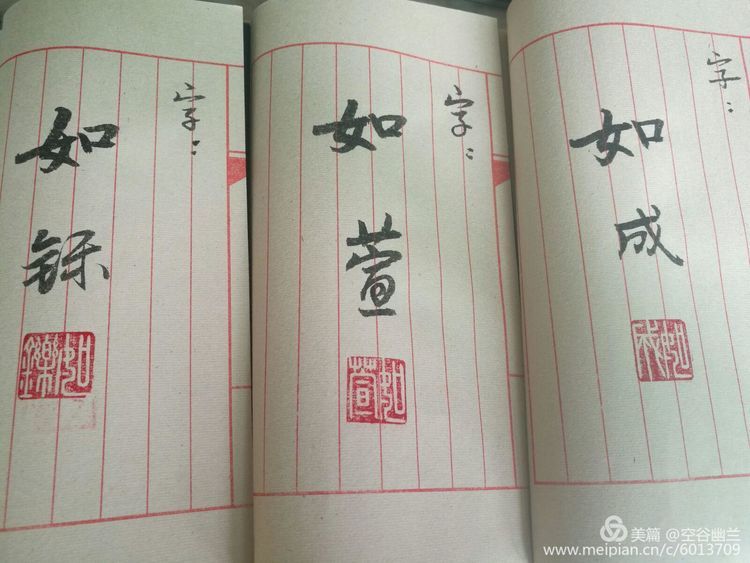 字：
如
铄
如鑠
字：
如
萱
如萱
字：
如
成
如成
美篇 @空谷幽兰
www.meipian.cn/c/6013709